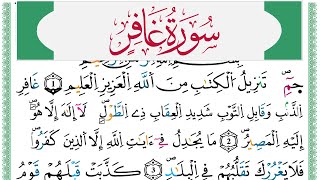 سُورَةُ غَافِرٍ
حمٓ تَنزِيلُ ٱلْكِتَٰبِ مِنَ ٱللَّهِ ٱلْعَزِيزِ ٱلْعَلِيمِ ۝٢ غَافِرِ
ٱلذَّنۢبِ وَقَابِلِ ٱلتَّوْبِ شَدِيدِ ٱلْعِقَابِ ذِے ٱلطَّوْلِ لَآ إِلَٰهَ إِلَّا هُوَ
إِلَيْهِ ٱلْمَصِيرُ ۝٢ مَا يُجَٰدِلُ فِےٓ ءَايَٰتِ ٱللَّهِ إِلَّا ٱلَّذِينَ كَفَرُوا۟
فَلَا يَغْرُرْكَ تَقَلُّبُهُمْ فِے ٱلْبِلَٰدِ ۝٣ كَذَّبَتْ قَبْلَهُمْ قَوْمُ